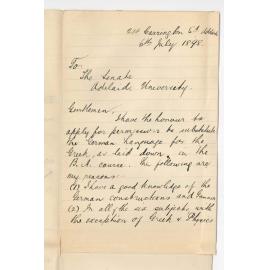 Carrington St
6th July 1898.
To.
The Senate
Adelaide University.
Gentlemen,
I have the honour to
apply for permission to substitute
the German language for the
Greek, as laid down, in the
B.A. course. The following are
my reasons:
(1) I have a good knowledge of the
German constructions and
(2) In all the six subjects with
the exception of Greek & Physics